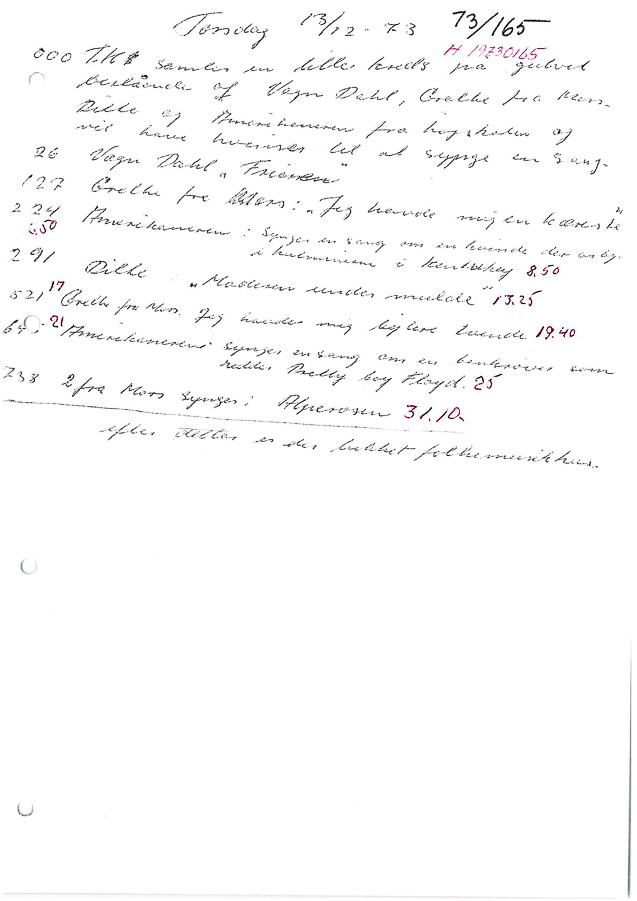 Torsdag 13/12-73 73/165
H 19730165
000 T.K. samler en lille kreds på gulvet
bestående af Vagn Dahl, Grethe fra Mors
Dille og Amerikaneren fra højskolen og
vil have hver til at synge en sang.
26 Vagn Dahl „Frieren"
127 Grethe fra Mors: „Jeg havde mig en kæreste"
224 Amerikaneren: Synger en sang om en kvinde der
6.50 i kulminerne i Kentuckey 8.50
291 Dille „Moderen under mulde" 13.25
521 17 Grethe fra Mors. Jeg havde mig bejlere tvende 19.40
21 Amerikaneren synger en sang om en bankrøver som
hedder Pretty boy Floyd. 25
738 2 fra Mors synger: Alperosen 31.10
efter dette er der lukket folkemusikhus.